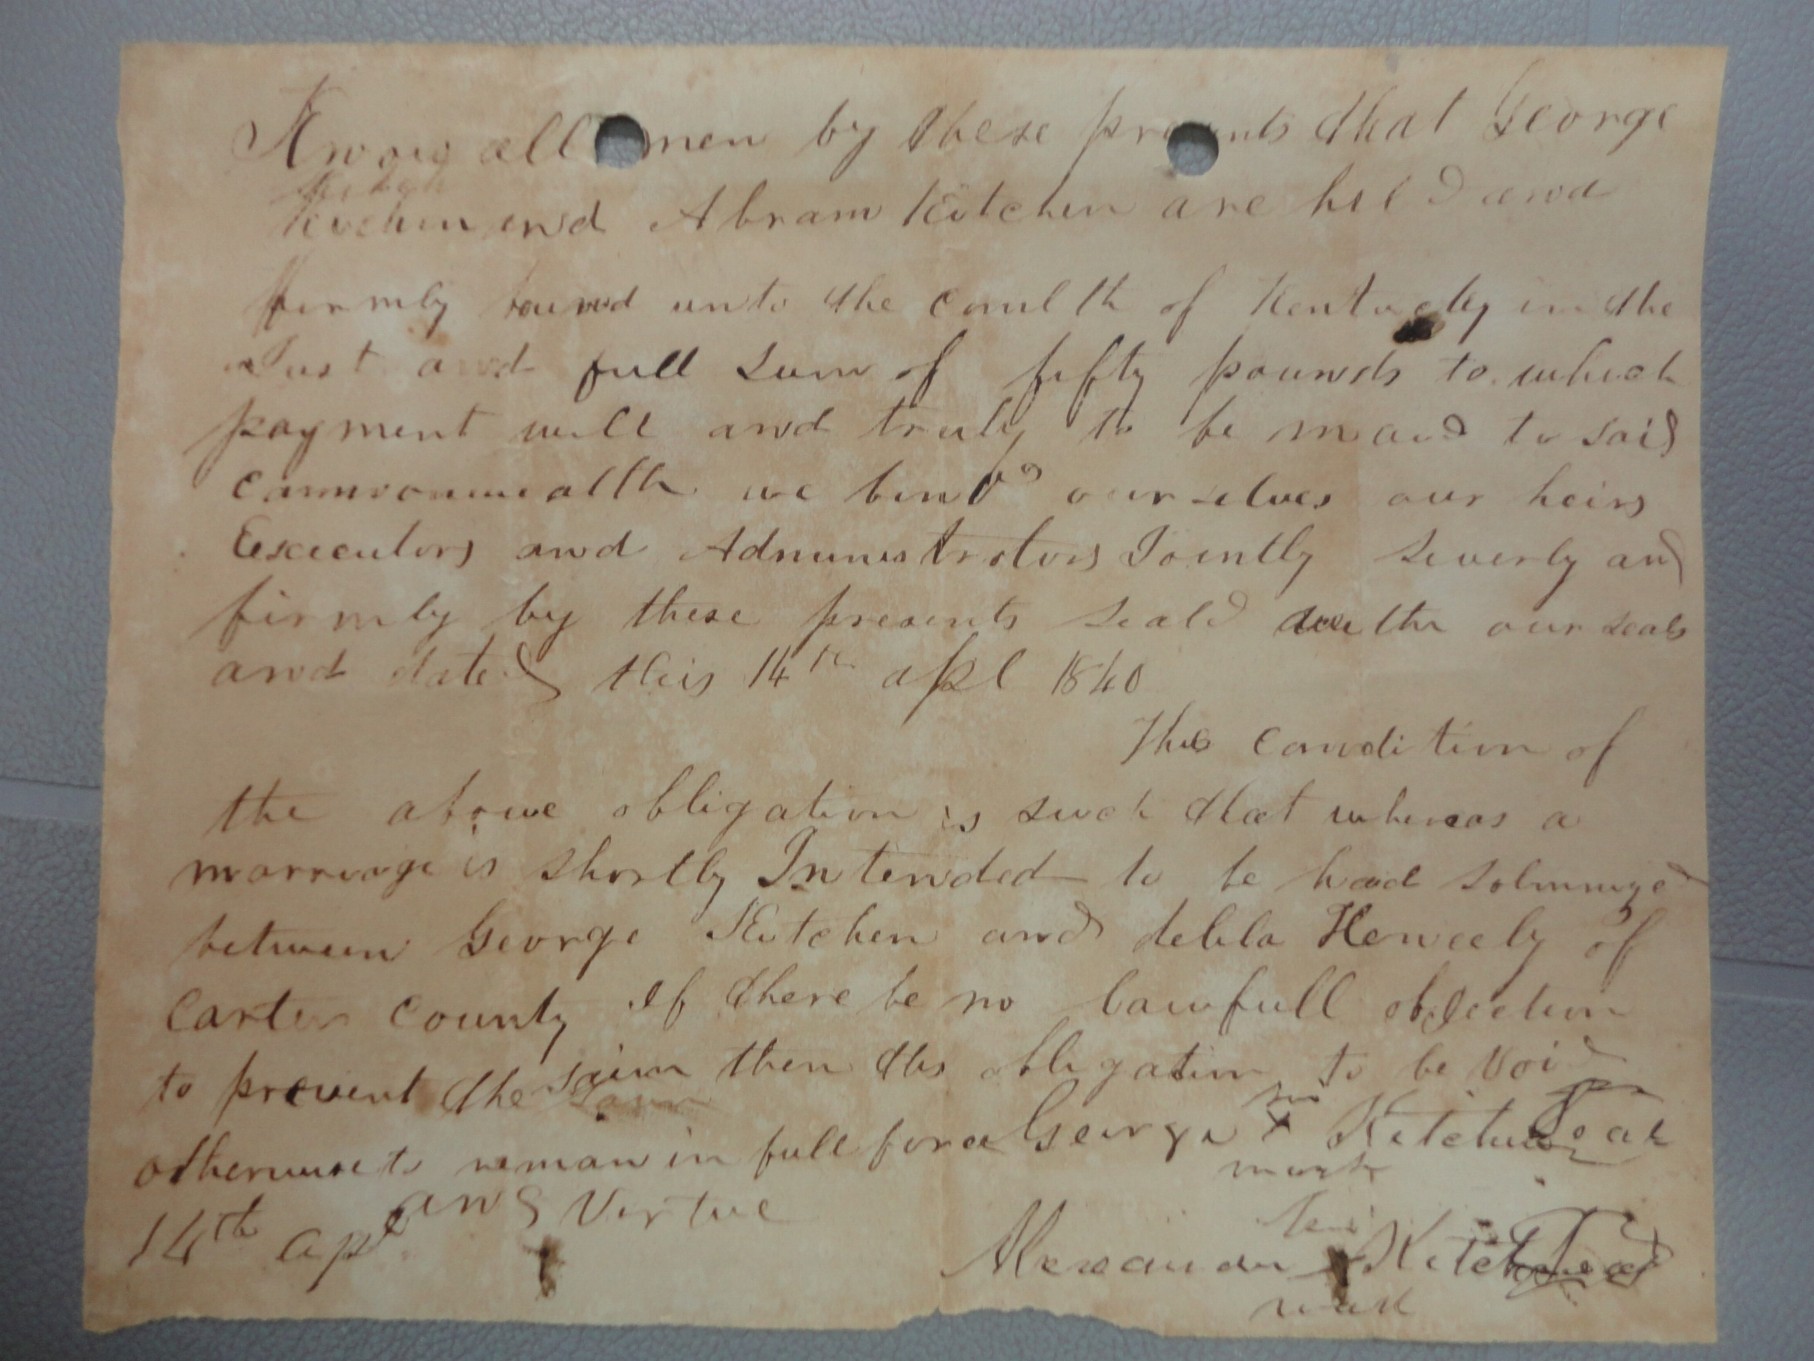 Know all men by these presents that George
Kitchen and Abram Kitchen are held and
firmly bound unto the Comlth of Kentucky in the
Just and full sum of fifty pounds to which
payment well and truly to be maid to said
Commonwealth we bind ourselves our heirs
Executors and Administrators Jointly Severly and
firmly by these presents seald with our seals
and dated this 14th apl 1840
The condition of
the above obligation is such that whereas a
marriage is shortly Intended to be had solmnized
between George Kitchen and delila of
Carter County if there be no lawfull objection
to prevent the saim then this obligation to be void
otherwise to remain in full force George x Kitchen Seal
mark
and Virtue
14th apl
his
Alexander x Kitchen Seal
mark